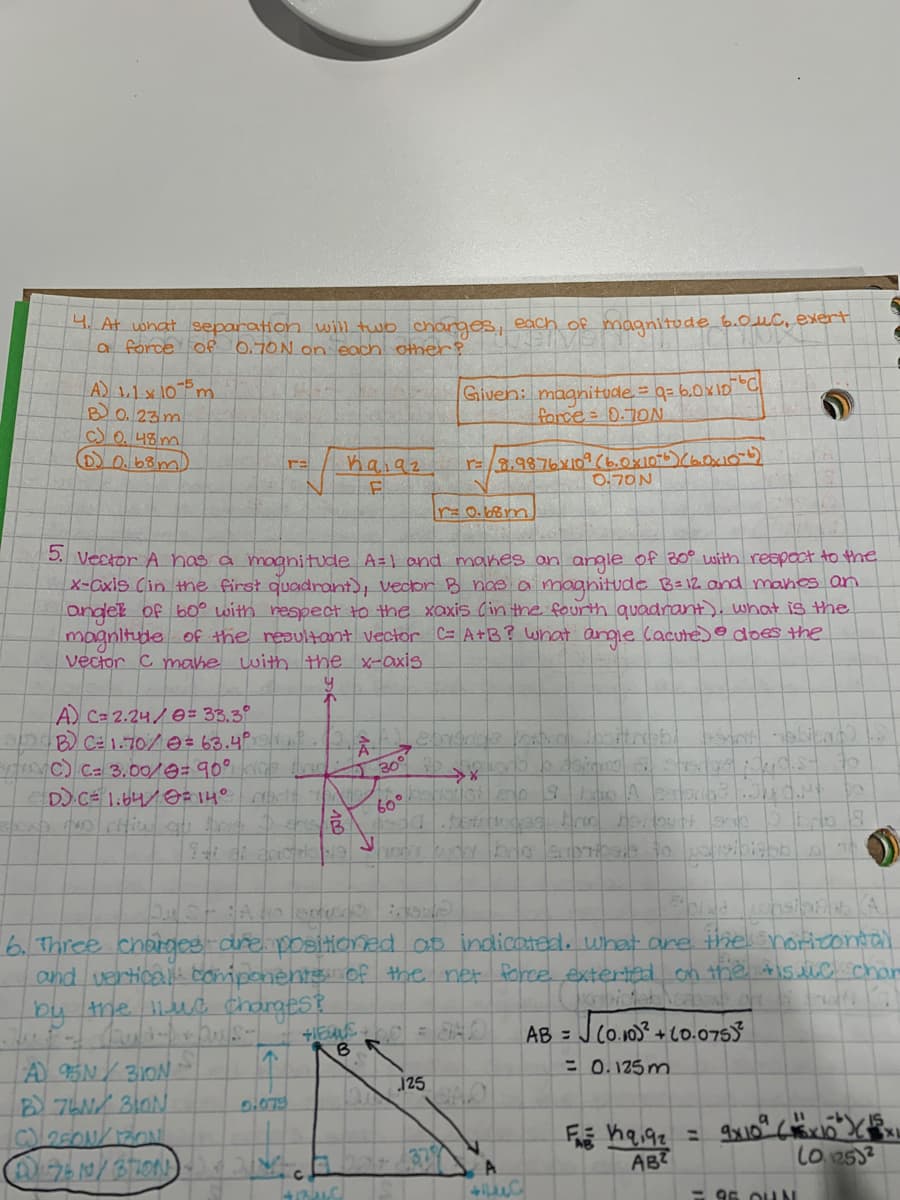 4. At what separation will two charges, each of magnitude 6.0μC, exert
a force of 0.70N on each other?
A) 1.1 x 10⁻⁵ m
B) 0.23m
C) 0.48m
D) 0.68m
Given: magnitude = q = 6.0x10⁻⁶C
force = 0.70N
r= √ kq₁q₂ / F
r= √ 8.9876x10⁹ (6.0x10⁻⁶)(6.0x10⁻⁶) / 0.70N
r= 0.68m
5. Vector A has a magnitude A=1 and makes an angle of 30° with respect to the
x-axis (in the first quadrant), vector B has a magnitude B=12 and makes an
angle of 60° with respect to the xaxis (in the fourth quadrant). what is the
magnitude of the resultant vector C= A+B? what angle (acute) θ does the
vector C make with the x-axis
A) C= 2.24/ θ= 33.3°
B) C= 1.70/ θ= 63.4°
C) C= 3.00/θ= 90°
D) C= 1.64/ θ= 14°
y
A
30°
x
60°
B
6. Three charges are positioned as indicated. what are the horizontal
and vertical components of the net force exterted on the +15μC
by the 11μC charges?
A) 95N / 310N
B) 76N/ 310N
C) 250N/ 130N
D) 76N/ 370N
B
0.075
.125
37°
C
A
+11μC
AB = √(0.10)² + (0.075)²
= 0.125m
F_AB = kq₁q₂ / AB² = 9x10⁹ (11x10⁻⁶)(15x1 / (0.125)²